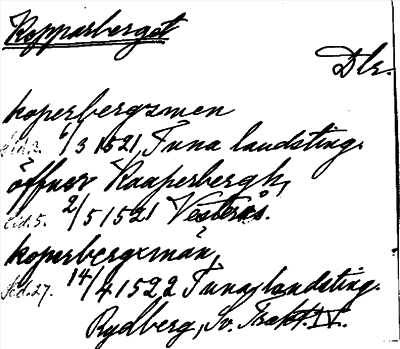 Kopparberget
Dlr.
koperbergxmen
sid. 2. 6/3 1521, Tuna landsting.
öffuer Kaaperbergh,
sid. 5. 2/5 1521 Vesterås.
koperbergxmän,
Sid. 27. 14/4 1522 Tuna landsting.
Rydberg, Sv. Trakt. IV.